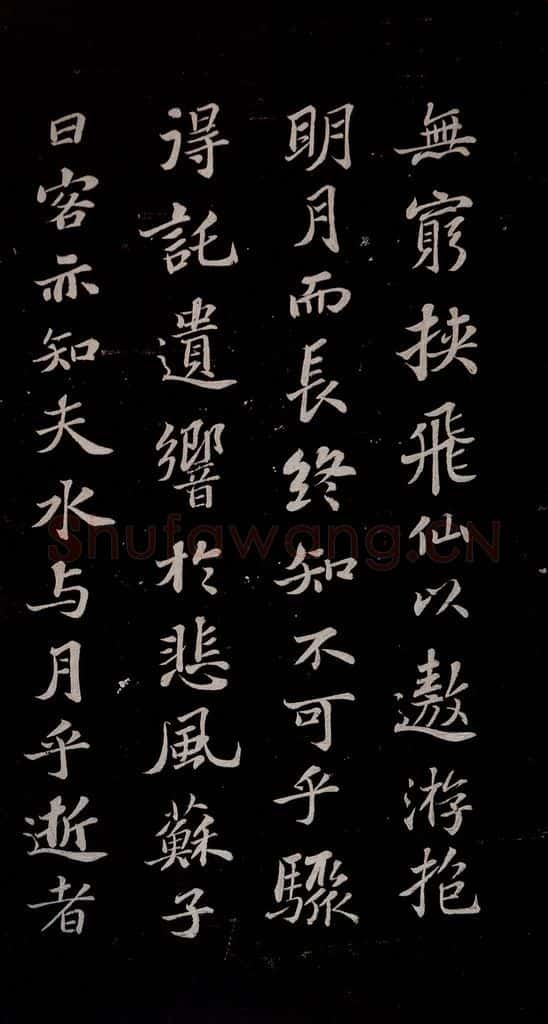 無窮挾飛仙以遨游抱
明月而長終知不可乎驟
得託遺響於悲風蘇子
曰客亦知夫水与月乎逝者
Shufawang.CN